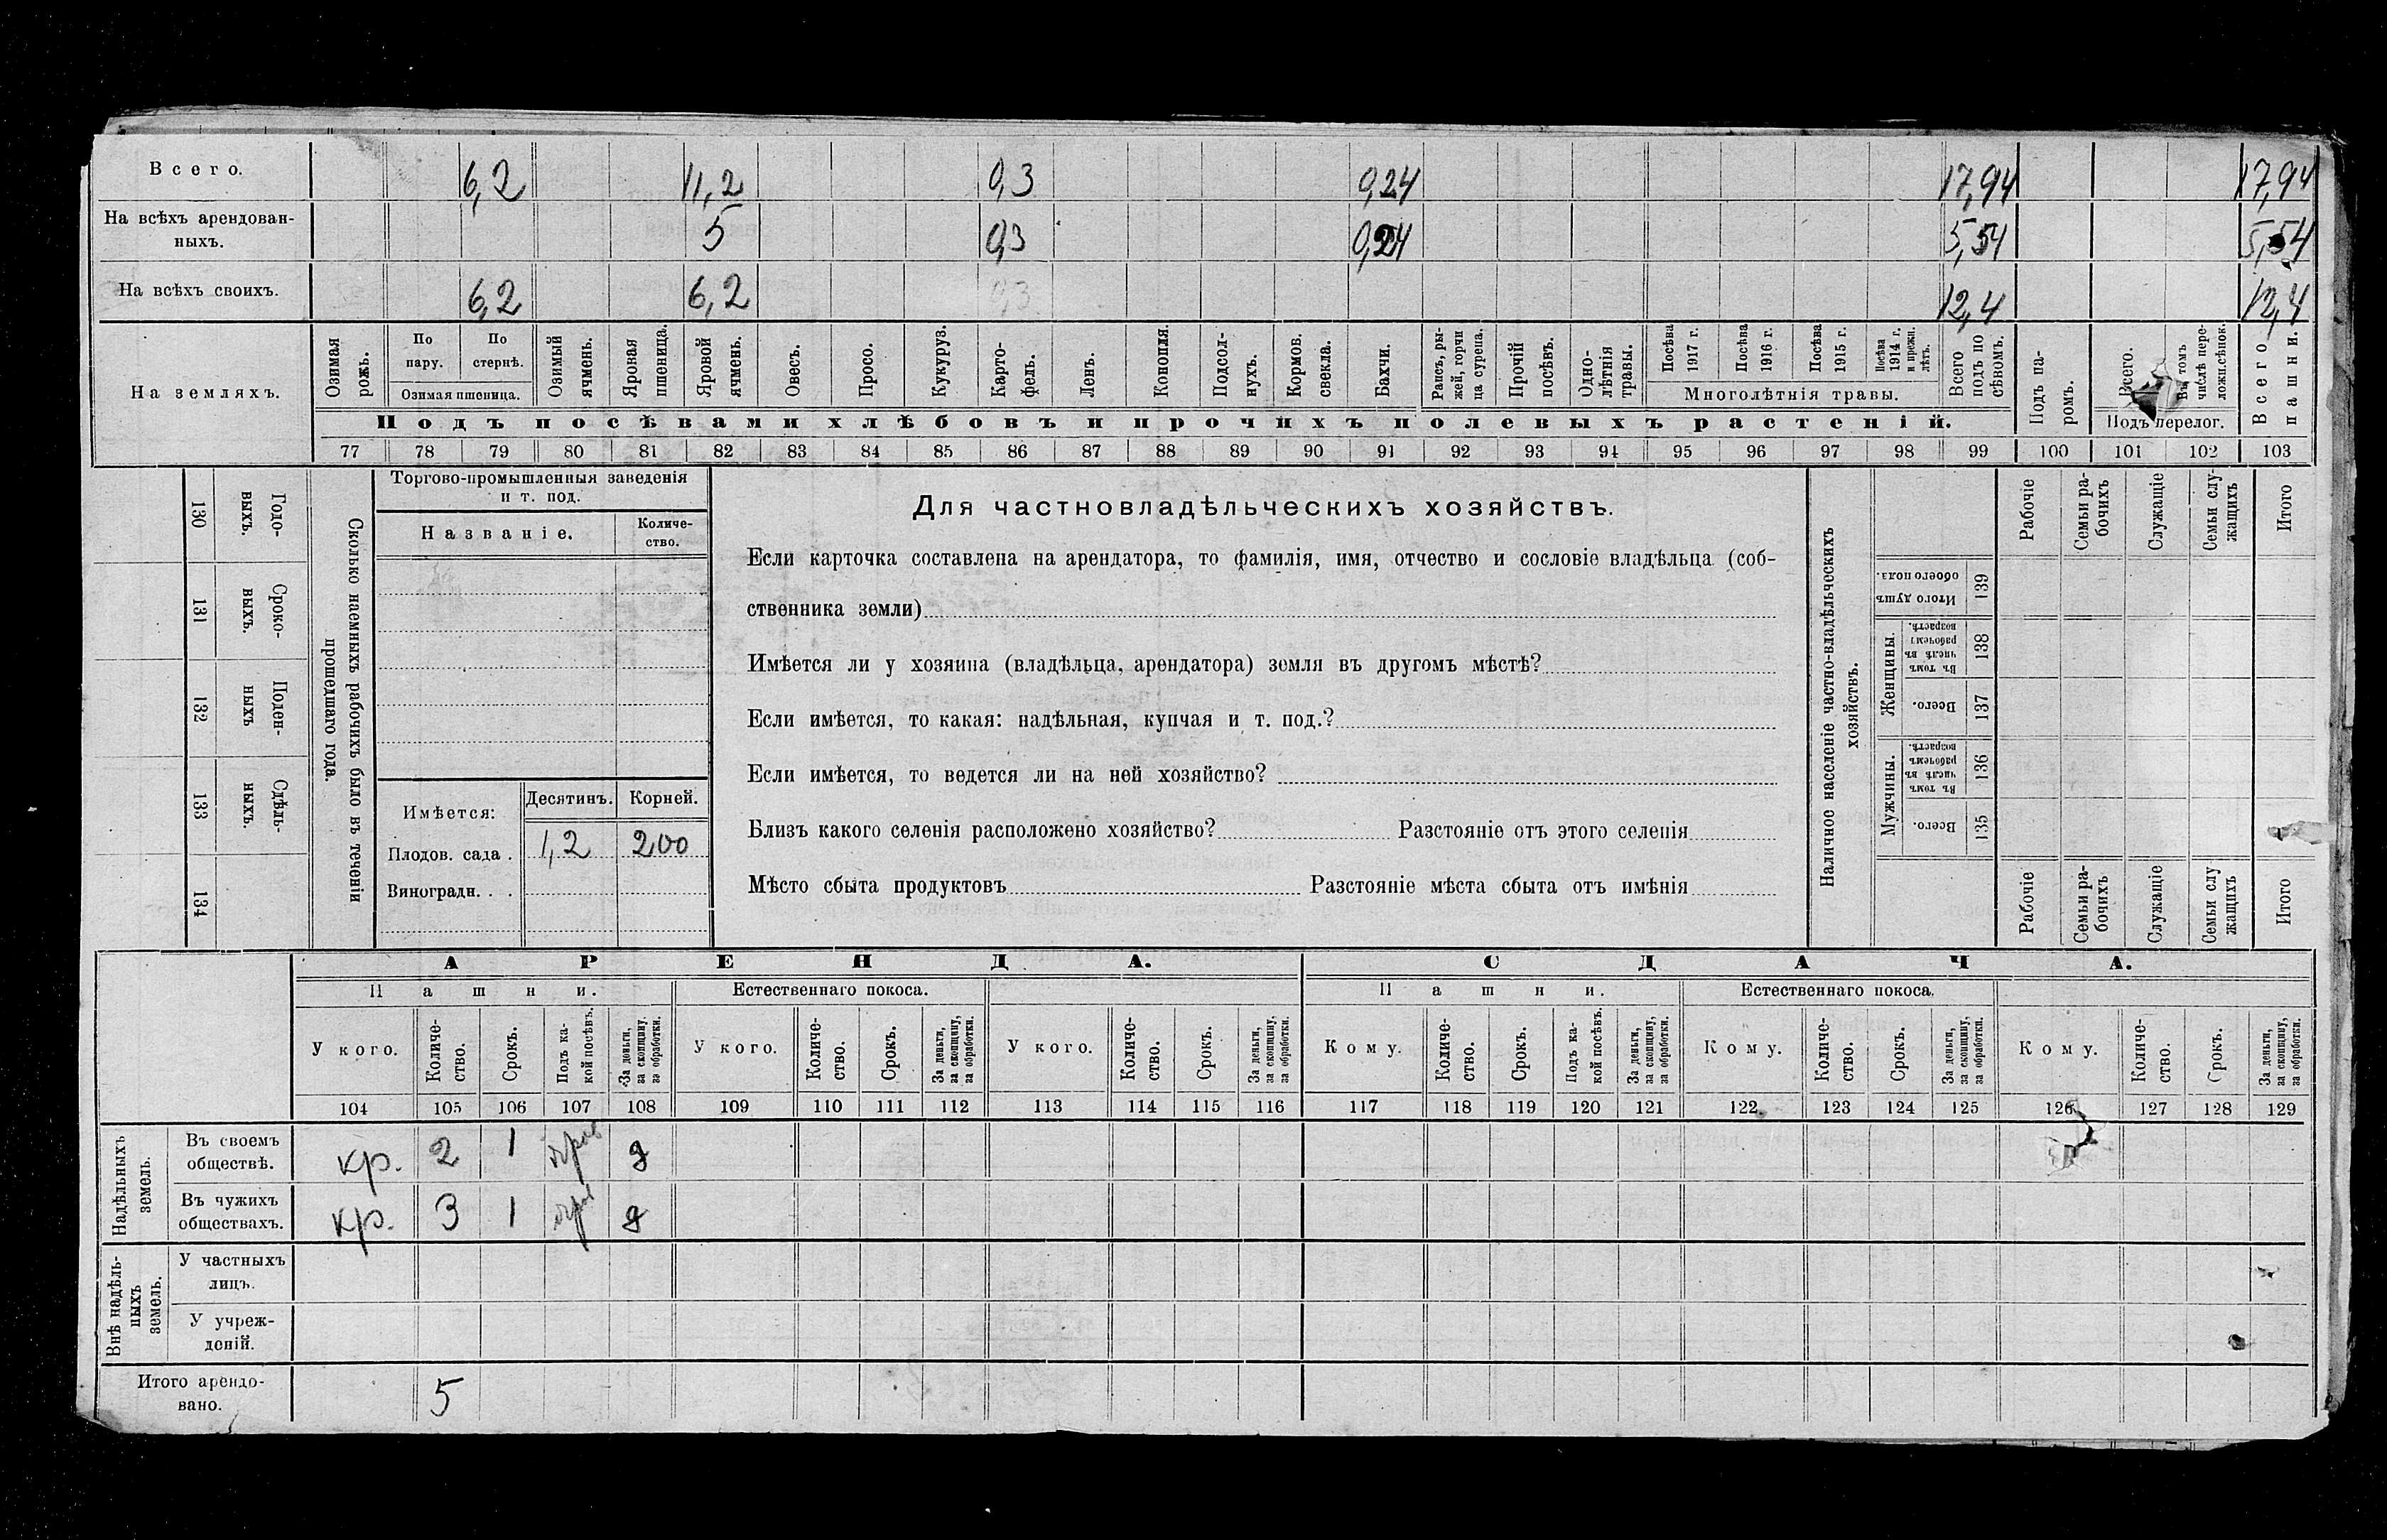 Всего. 6,2 11,2 0,3 0,24 17,94 17,94
На всѣхъ арендован-
ныхъ. 5 0,3 0,24 5,54 5,54
На всѣхъ своихъ. 6,2 6,2 0,3 12,4 12,4
На земляхъ.
Озимая рожь.
По пару.
По стернѣ.
Озимая пшеница.
Озимый ячмень.
Яровая пшеница.
Яровой ячмень.
Овесъ.
Просо.
Кукуруз.
Карто-
фель.
Ленъ.
Конопля.
Подсол-
нухъ.
Кормов.
свекла.
Бахчи.
Рапсъ, ры-
жей, горчи
ца сурепа.
Прочій
посѣвъ.
Одно-
лѣтнія
травы.
Посѣва
1917 г.
Посѣва
1916 г.
Посѣва
1915 г.
Посѣва
1914 г.
и прежн.
лѣтъ.
Многолѣтнія травы.
Всего
подъ по
сѣвомъ.
Подъ па-
ромъ.
Всего.
Въ томъ
числѣ пере-
ложн.сѣнок.
Подъ перелог.
Всего
пашни.
Подъ посѣвами хлѣбовъ и прочихъ полевыхъ растеній.
77 78 79 80 81 82 83 84 85 86 87 88 89 90 91 92 93 94 95 96 97 98 99 100 101 102 103
130 Годо-
выхъ.
131 Сроко-
ныхъ.
132 Поден-
ныхъ
133 Сдѣль-
ныхъ.
134
Сколько наемныхъ рабочихъ было въ теченіи
прошедшаго года.
Торгово-промышленныя заведенія
и т. под.
Названіе.
Количе-
ство.
Имѣется: Десятинъ. Корней.
Плодов. сада . 1,2 200
Виноградн. . .
Для частновладѣльческихъ хозяйствъ.
Если карточка составлена на арендатора, то фамилія, имя, отчество и сословіе владѣльца (соб-
ственника земли)
Имѣется ли у хозяина (владѣльца, арендатора) земля въ другомъ мѣстѣ?
Если имѣется, то какая: надѣльная, купчая и т. под.?
Если имѣется, то ведется ли на ней хозяйство?
Близъ какого селенія расположено хозяйство? Разстояніе отъ этого селенія
Мѣсто сбыта продуктовъ Разстояніе мѣста сбыта отъ имѣнія
Наличное населеніе частно-владѣльческихъ
хозяйствъ.
Рабочіе
Семьи ра-
бочихъ
Служащіе
Семьи слу-
жащихъ
Итого
Итого душъ
обоего пола.
139
Женщины.
Въ томъ
числѣ въ
рабочемъ
возрастѣ.
138
Всего.
137
Мужчины.
Въ томъ
числѣ въ
рабочемъ
возрастѣ.
136
Всего.
135
Рабочіе
Семьи ра-
бочихъ
Служащіе
Семьи слу
жащихъ
Итого
АРЕНДА. СДАЧА.
Пашни. Естественнаго покоса. Пашни. Естественнаго покоса.
У кого.
Количе-
ство.
Срокъ.
Подъ ка-
кой посѣвъ.
За деньги,
за скопщину,
за обработки.
У кого.
Количе-
ство.
Срокъ.
За деньги,
за скопщину,
за обработки.
У кого.
Количе-
ство.
Срокъ.
За деньги,
за скопщину,
за обработки.
Кому.
Количе-
ство.
Срокъ.
Подъ ка-
кой посѣвъ.
За деньги,
за скопщину,
за обработки.
Кому.
Количе-
ство.
Срокъ.
За деньги,
за скопщину,
за обработки.
Кому.
Количе-
ство.
Срокъ.
За деньги,
за скопщину,
за обработки.
104 105 106 107 108 109 110 111 112 113 114 115 116 117 118 119 120 121 122 123 124 125 126 127 128 129
Надѣльныхъ
земель.
Въ своемъ
обществѣ. кр. 2 1 д
Въ чужихъ
обществахъ. кр. 3 1 д
Внѣ надѣль-
ныхъ
земель.
У частныхъ
лицъ.
У учреж-
деній.
Итого арендо-
вано. 5